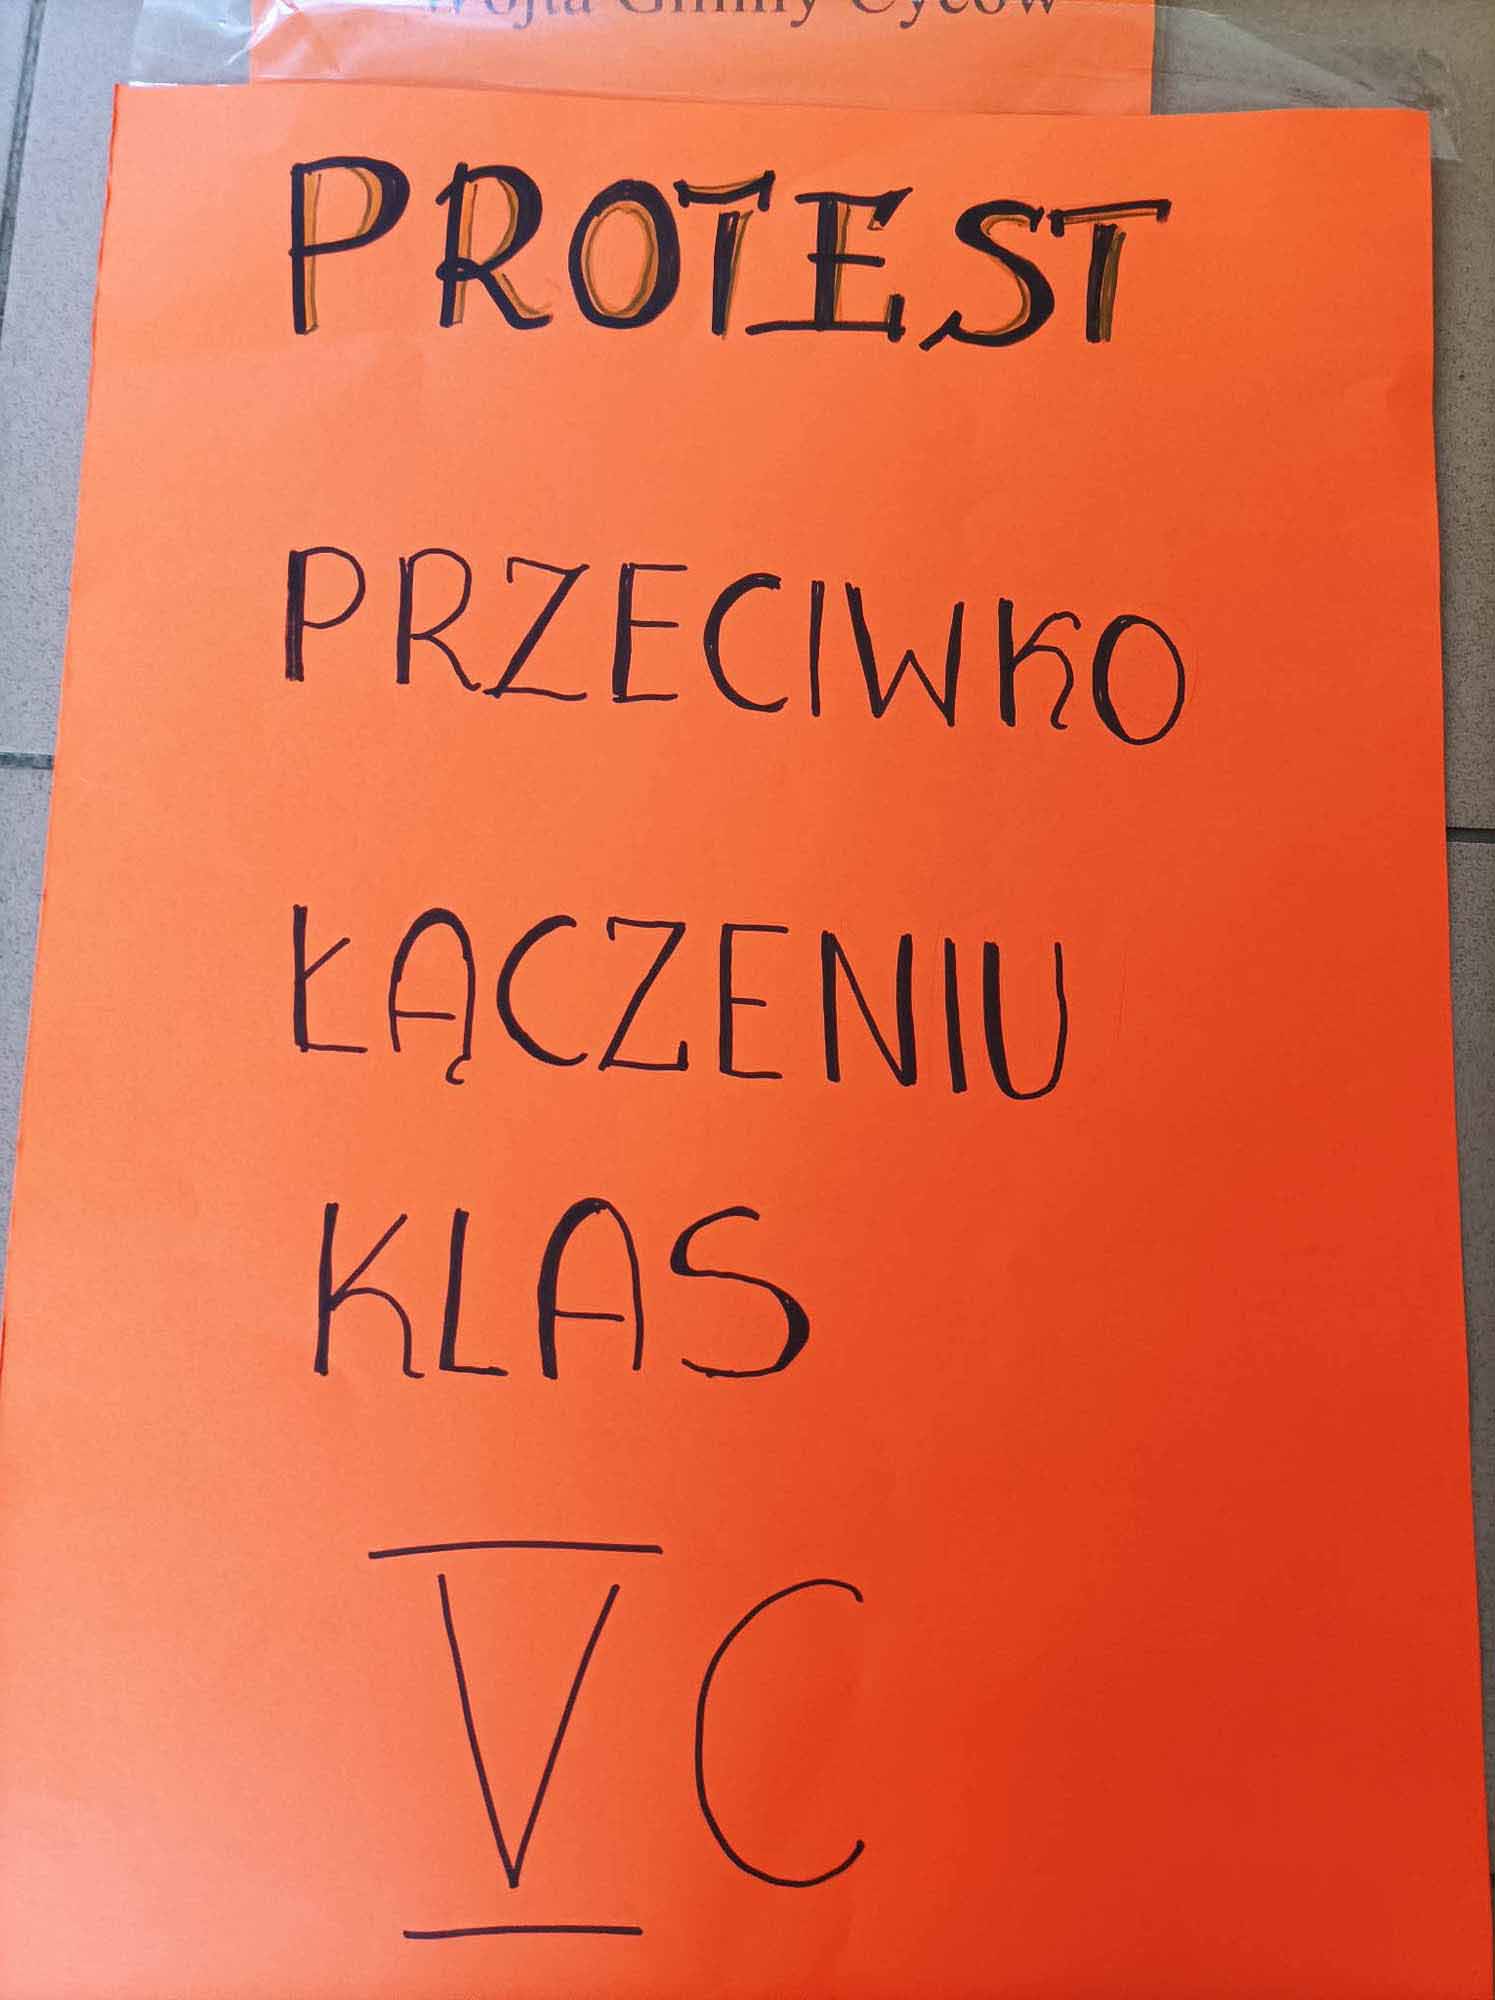 Wójta Gminy Cyców
PROTEST
PRZECIWKO
ŁĄCZENIU
KLAS
V C